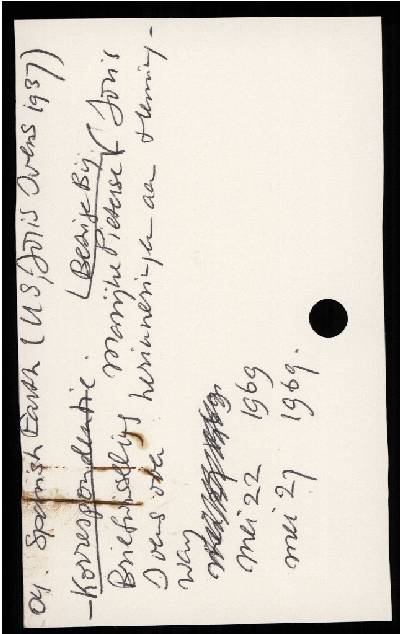 04. Spanish Earth (US, Joris Ivens 1937)
- Korrespondentie. (Bezige Bij)
Briefwisseling Marijke Pieterse ( Joris
Ivens over herinneringen aan Heming-
way
mei 22 1969
mei 27 1969.